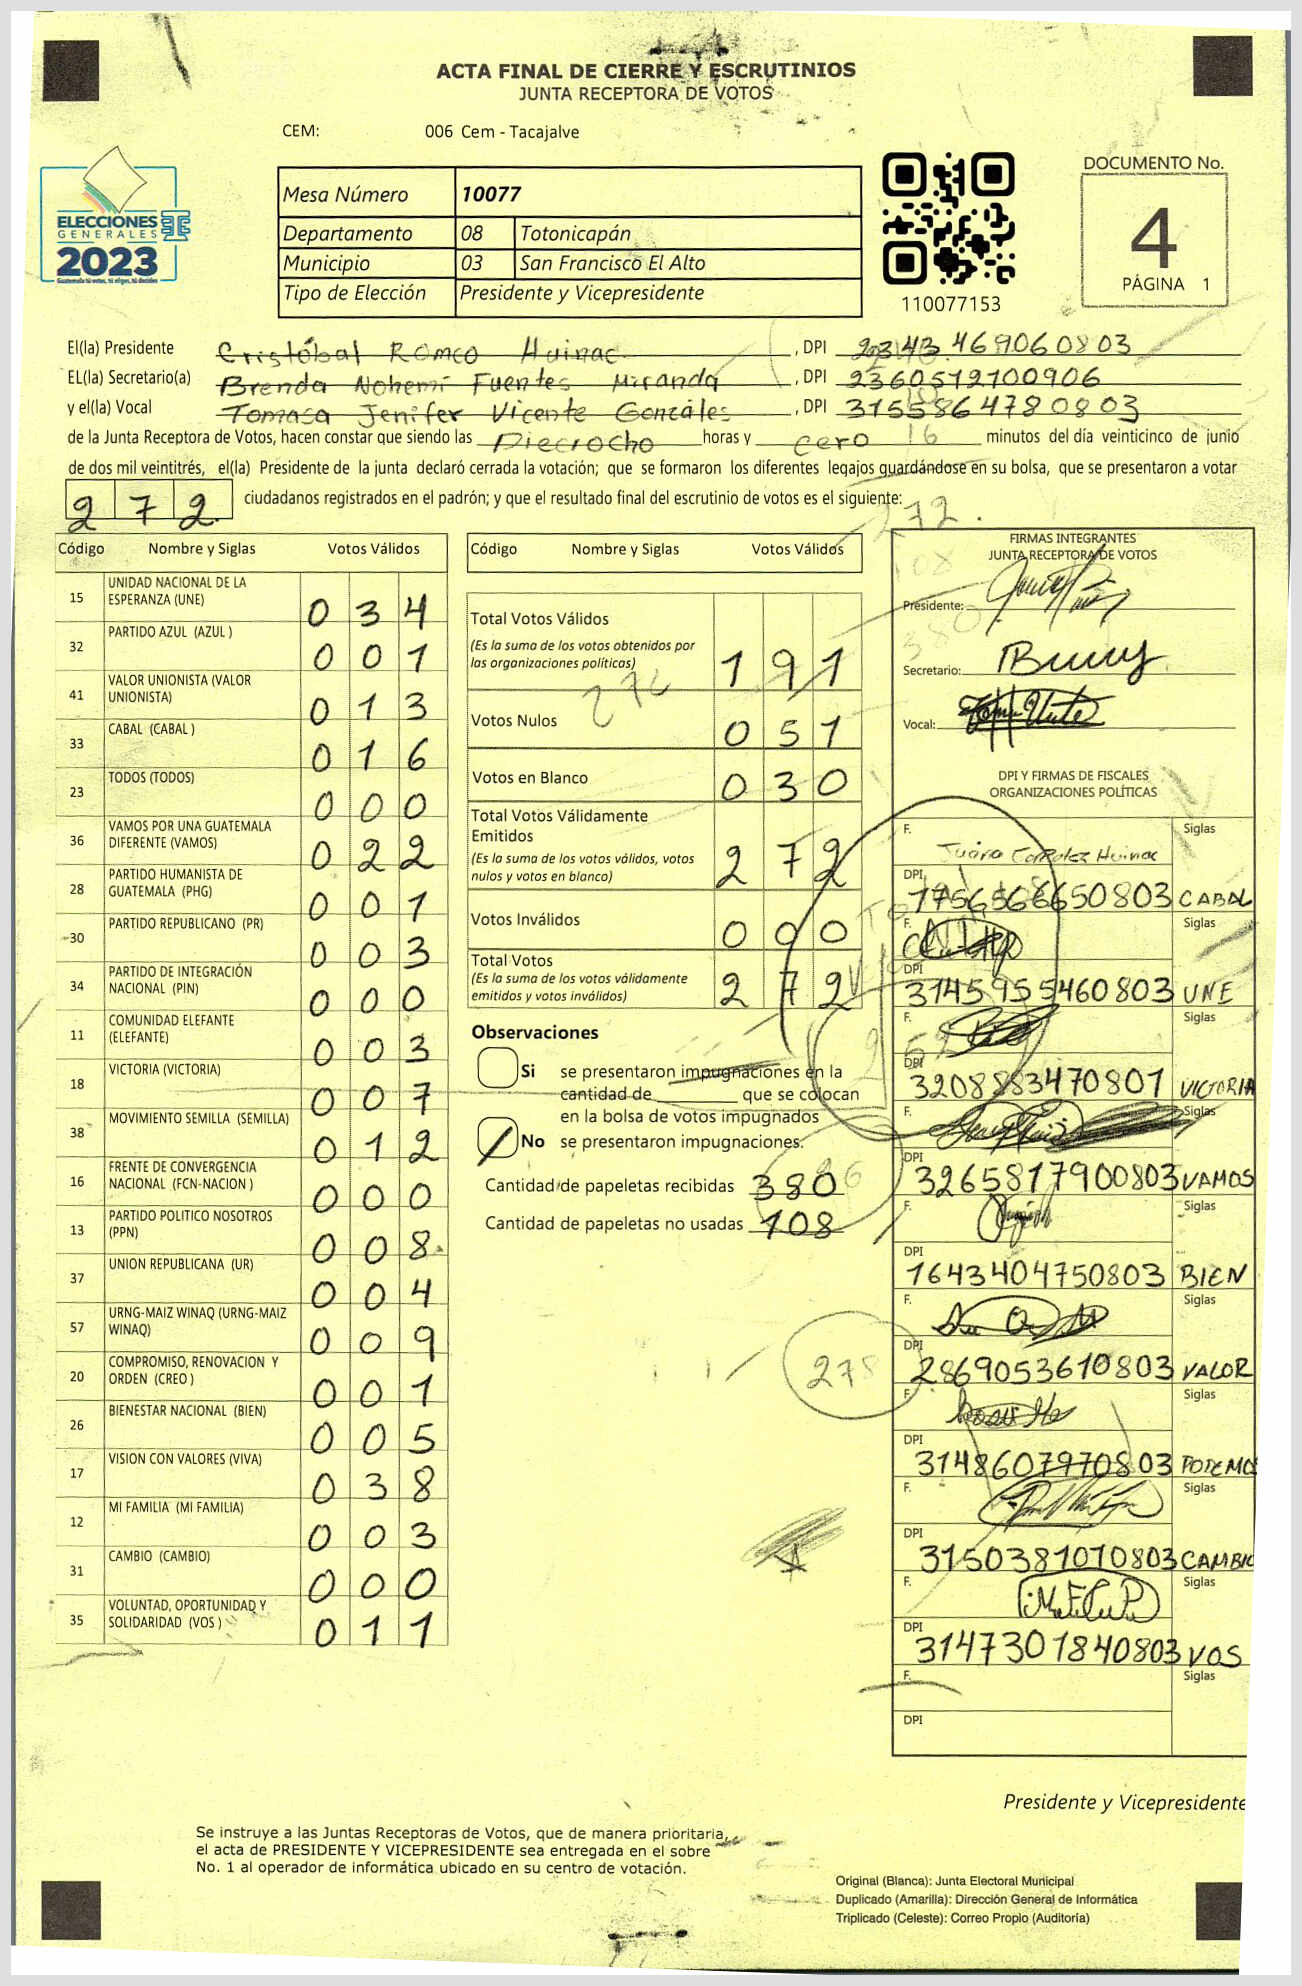 ACTA FINAL DE CIERRE Y ESCRUTINIOS
JUNTA RECEPTORA DE VOTOS
CEM: 006 Cem - Tacajalve
ELECCIONES
GENERALES
2023
Guatemala tú votas, tú eliges, tú decides
Mesa Número 10077
Departamento 08 Totonicapán
Municipio 03 San Francisco El Alto
Tipo de Elección Presidente y Vicepresidente
110077153
DOCUMENTO No.
4
PÁGINA 1
El(la) Presidente Cristóbal Romeo Huinac, DPI 2343 469060803
EL(la) Secretario(a) Brenda Nohemí Fuentes Miranda, DPI 2360512100906
y el(la) Vocal Tomasa Jenifer Vicente Gonzáles, DPI 3155864780803
de la Junta Receptora de Votos, hacen constar que siendo las Dieciocho horas y cero 16 minutos del día veinticinco de junio
de dos mil veintitrés, el(la) Presidente de la junta declaró cerrada la votación; que se formaron los diferentes legajos guardándose en su bolsa, que se presentaron a votar
272 ciudadanos registrados en el padrón; y que el resultado final del escrutinio de votos es el siguiente:
272.
Código Nombre y Siglas Votos Válidos
15 UNIDAD NACIONAL DE LA
ESPERANZA (UNE) 034
32 PARTIDO AZUL (AZUL ) 001
41 VALOR UNIONISTA (VALOR
UNIONISTA) 013
33 CABAL (CABAL ) 016
23 TODOS (TODOS) 000
36 VAMOS POR UNA GUATEMALA
DIFERENTE (VAMOS) 022
28 PARTIDO HUMANISTA DE
GUATEMALA (PHG) 001
30 PARTIDO REPUBLICANO (PR) 003
34 PARTIDO DE INTEGRACIÓN
NACIONAL (PIN) 000
11 COMUNIDAD ELEFANTE
(ELEFANTE) 003
18 VICTORIA (VICTORIA) 007
38 MOVIMIENTO SEMILLA (SEMILLA) 012
16 FRENTE DE CONVERGENCIA
NACIONAL (FCN-NACION ) 000
13 PARTIDO POLITICO NOSOTROS
(PPN) 008
37 UNION REPUBLICANA (UR) 004
57 URNG-MAIZ WINAQ (URNG-MAIZ
WINAQ) 009
20 COMPROMISO, RENOVACION Y
ORDEN (CREO ) 001
26 BIENESTAR NACIONAL (BIEN) 005
17 VISION CON VALORES (VIVA) 038
12 MI FAMILIA (MI FAMILIA) 003
31 CAMBIO (CAMBIO) 000
35 VOLUNTAD, OPORTUNIDAD Y
SOLIDARIDAD (VOS ) 011
Código Nombre y Siglas Votos Válidos
Total Votos Válidos
(Es la suma de los votos obtenidos por
las organizaciones políticas) 191
Votos Nulos 051
Votos en Blanco 030
Total Votos Válidamente
Emitidos
(Es la suma de los votos válidos, votos
nulos y votos en blanco) 272
Votos Inválidos 000
Total Votos
(Es la suma de los votos válidamente
emitidos y votos inválidos) 272
Observaciones
Si se presentaron impugnaciones en la
cantidad de que se colocan
en la bolsa de votos impugnados
No se presentaron impugnaciones.
Cantidad de papeletas recibidas 380
Cantidad de papeletas no usadas 108
278
FIRMAS INTEGRANTES
JUNTA RECEPTORA DE VOTOS
Presidente:
Secretario:
Vocal:
DPI Y FIRMAS DE FISCALES
ORGANIZACIONES POLÍTICAS
F. Juana González Huinac Siglas
DPI 1756566650803 CABAL
F. Siglas
DPI 3145955460803 UNE
F.
DPI 3208883470801 VICTORIA
F. Siglas
DPI 3265817900803 VAMOS
F. Siglas
DPI 1643404750803 BIEN
F. Siglas
DPI 2869053610803 VALOR
F. Siglas
DPI 3148607970803 PODEMOS
F. Siglas
DPI 3150381010803 CAMBIO
F. Siglas
DPI 3147301840803 VOS
F. Siglas
DPI
Presidente y Vicepresidente
Se instruye a las Juntas Receptoras de Votos, que de manera prioritaria,
el acta de PRESIDENTE Y VICEPRESIDENTE sea entregada en el sobre
No. 1 al operador de informática ubicado en su centro de votación.
Original (Blanca): Junta Electoral Municipal
Duplicado (Amarilla): Dirección General de Informática
Triplicado (Celeste): Correo Propio (Auditoría)